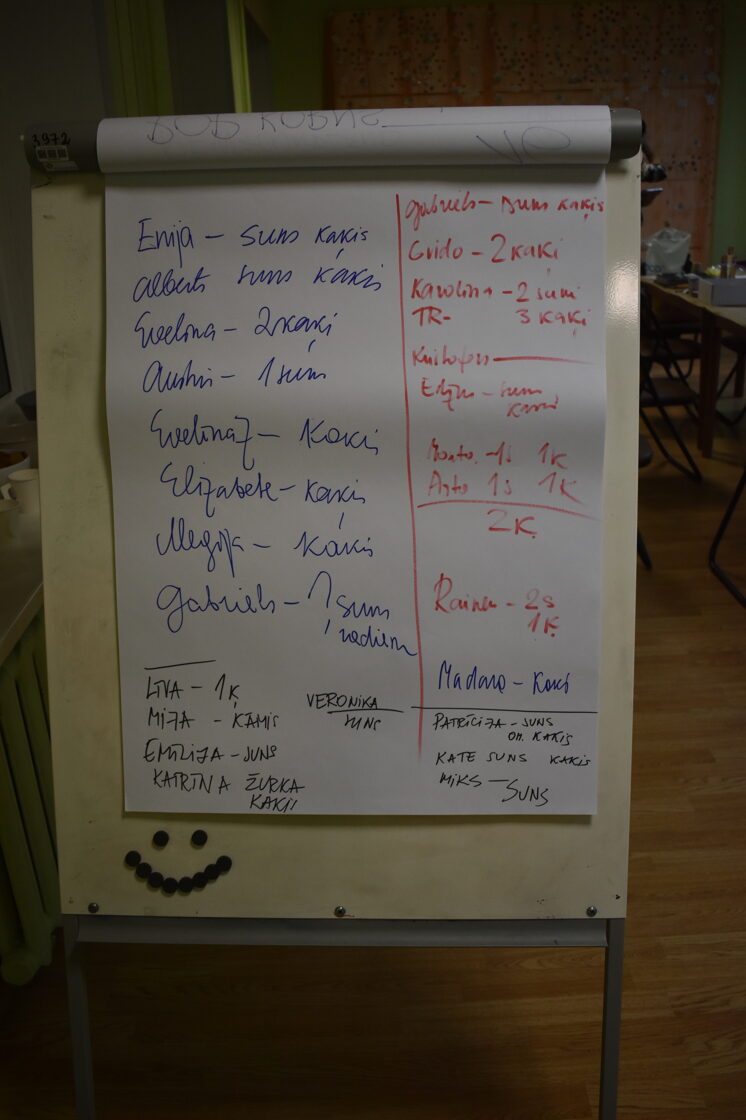 3972
Enija – suns kaķis
Alberts suns kaķis
Evelīna – 2 kaķi
Austris – 1 suns
Evelīna Z – Kaķis
Elizabete – kaķis
Megija – kaķis
Gabriels – 1 suns
LĪVA – 1Ķ
MIJA – KAĶIS
EMĪLIJA – SUNS
KATRĪNA ŽURKA
KAĶIS
VERONIKA
SUNS
Gabriels – suns kaķis
Gvido – 2 kaķi
Karolīna – 2 suņi
TR– 3 kaķi
Kristofers
suns
1s 1Ķ
1s 1Ķ
2Ķ
– 2s
1Ķ
Madara – Kaķi
PATRĪCIJA – SUNS
OM. KAĶIS
KATE SUNS KAĶIS
MIKS – SUNS